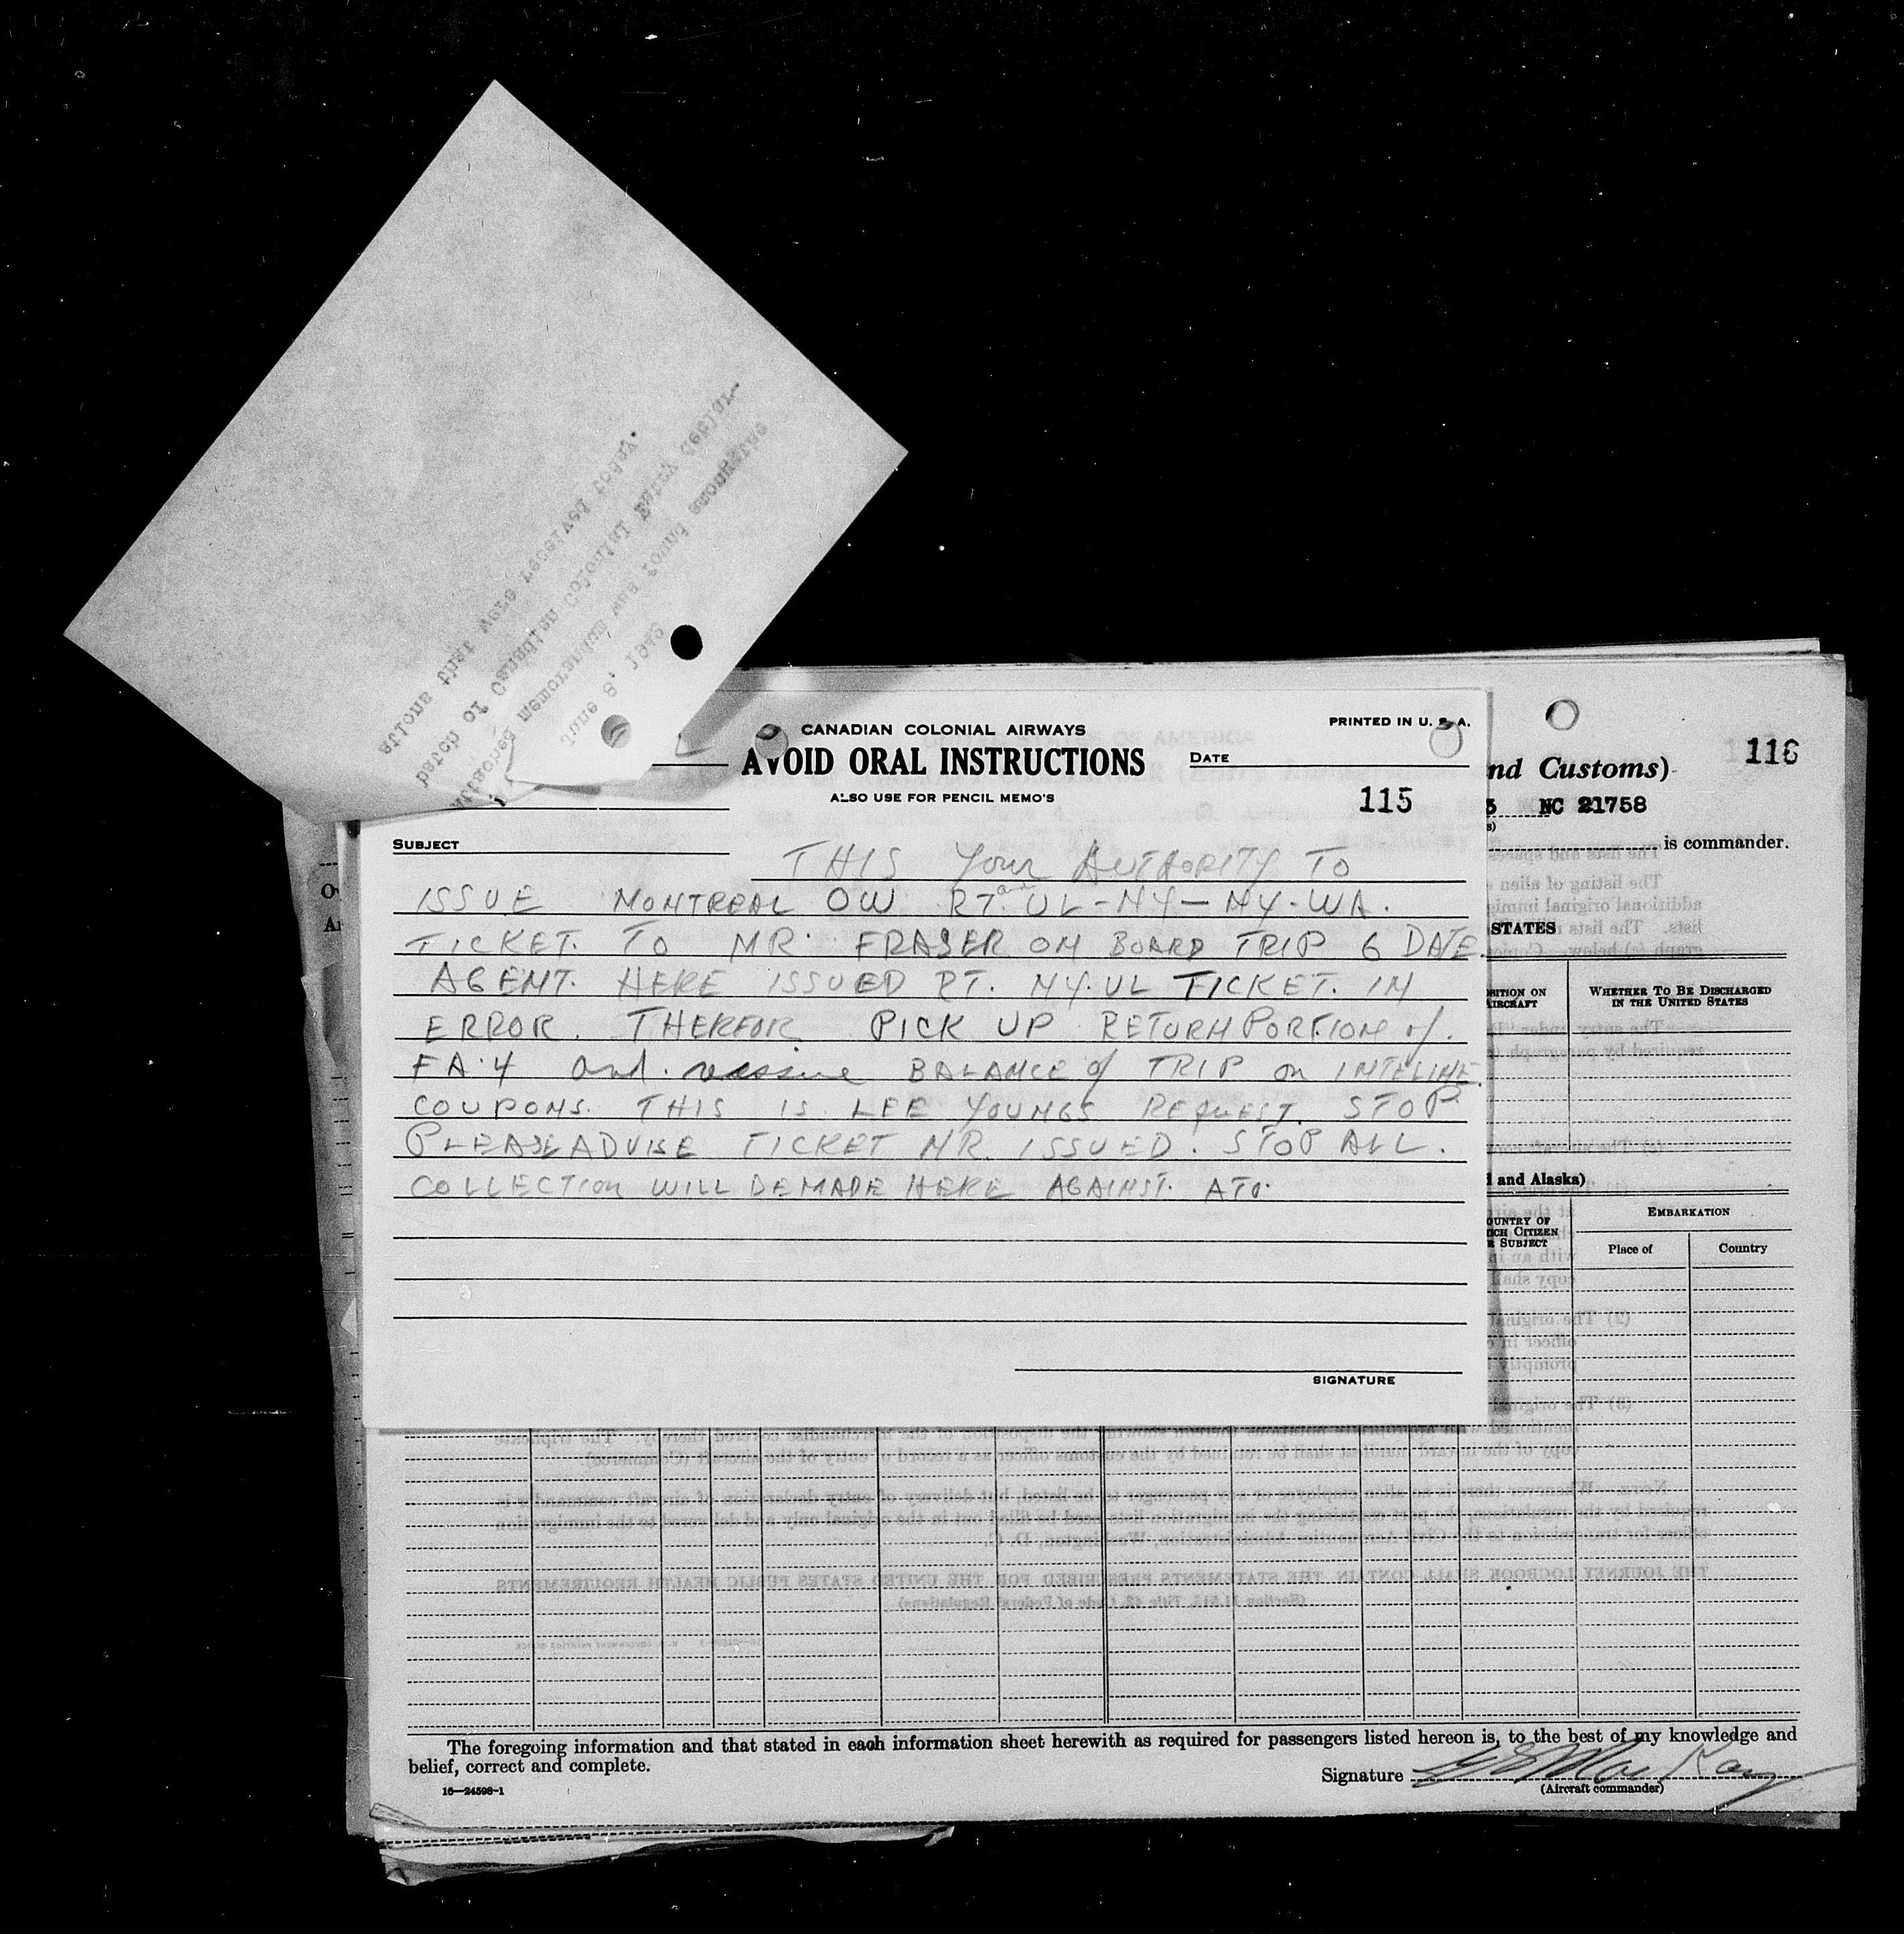 June 8, 1942
attached memorandum was found among the
batch of Canadian Colonial Entry Declar-
ations that were received today.
CANADIAN COLONIAL AIRWAYS
PRINTED IN U. S. A.
AVOID ORAL INSTRUCTIONS
DATE
ALSO USE FOR PENCIL MEMO'S
115
SUBJECT
THIS Your AUTHORITY TO
ISSUE MONTREAL OW RT. and UL-NY-NY-WA.
TICKET. TO MR. FRASER ON BOARD TRIP 6 DATE.
AGENT. HERE ISSUED RT. NY. UL TICKET. IN
ERROR. THERFOR PICK UP RETURN PORTION of.
FA.4 and. reissue BALANCE of TRIP on INTELINE.
COUPONS. THIS IS LEE YOUNGS REQUEST. STOP
PLEASE ADVISE TICKET NR. ISSUED. STOP ALL.
COLLECTION WILL BE MADE HERE AGAINST. ATO.
SIGNATURE
nd Customs)
116
NC 21758
is commander.
STATES
SITION ON
AIRCRAFT
WHETHER TO BE DISCHARGED
IN THE UNITED STATES
and Alaska)
OUNTRY OF
ICH CITIZEN
SUBJECT
EMBARKATION
Place of
Country
The foregoing information and that stated in each information sheet herewith as required for passengers listed hereon is, to the best of my knowledge and
belief, correct and complete.
Signature
(Aircraft commander)
16—24598-1